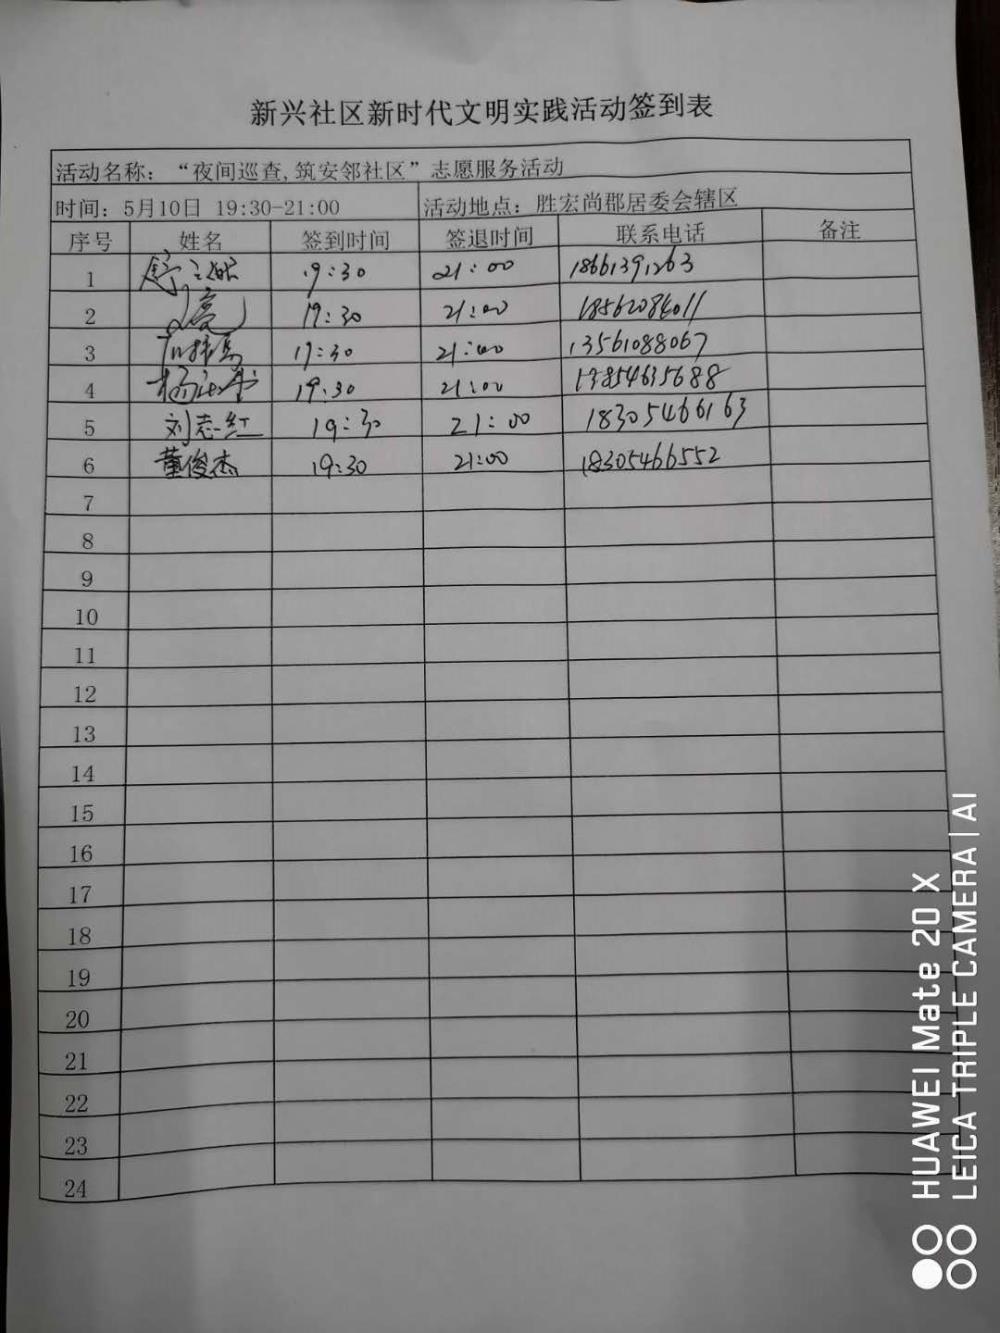 新兴社区新时代文明实践活动签到表
活动名称：“夜间巡查,筑安邻社区”志愿服务活动
时间：5月10日 19:30-21:00 活动地点：胜宏尚郡居委会辖区
序号 姓名 签到时间 签退时间 联系电话 备注
1 19:30 21:00 18661391263
2 19:30 21:00 18562084011
3 19:30 21:00 13561088067
4 19:30 21:00 13854635688
5 刘志红 19:30 21:00 18305466163
6 董俊杰 19:30 21:00 18305466552
7
8
9
10
11
12
13
14
15
16
17
18
19
20
21
22
23
24
HUAWEI Mate 20 X
LEICA TRIPLE CAMERA | AI